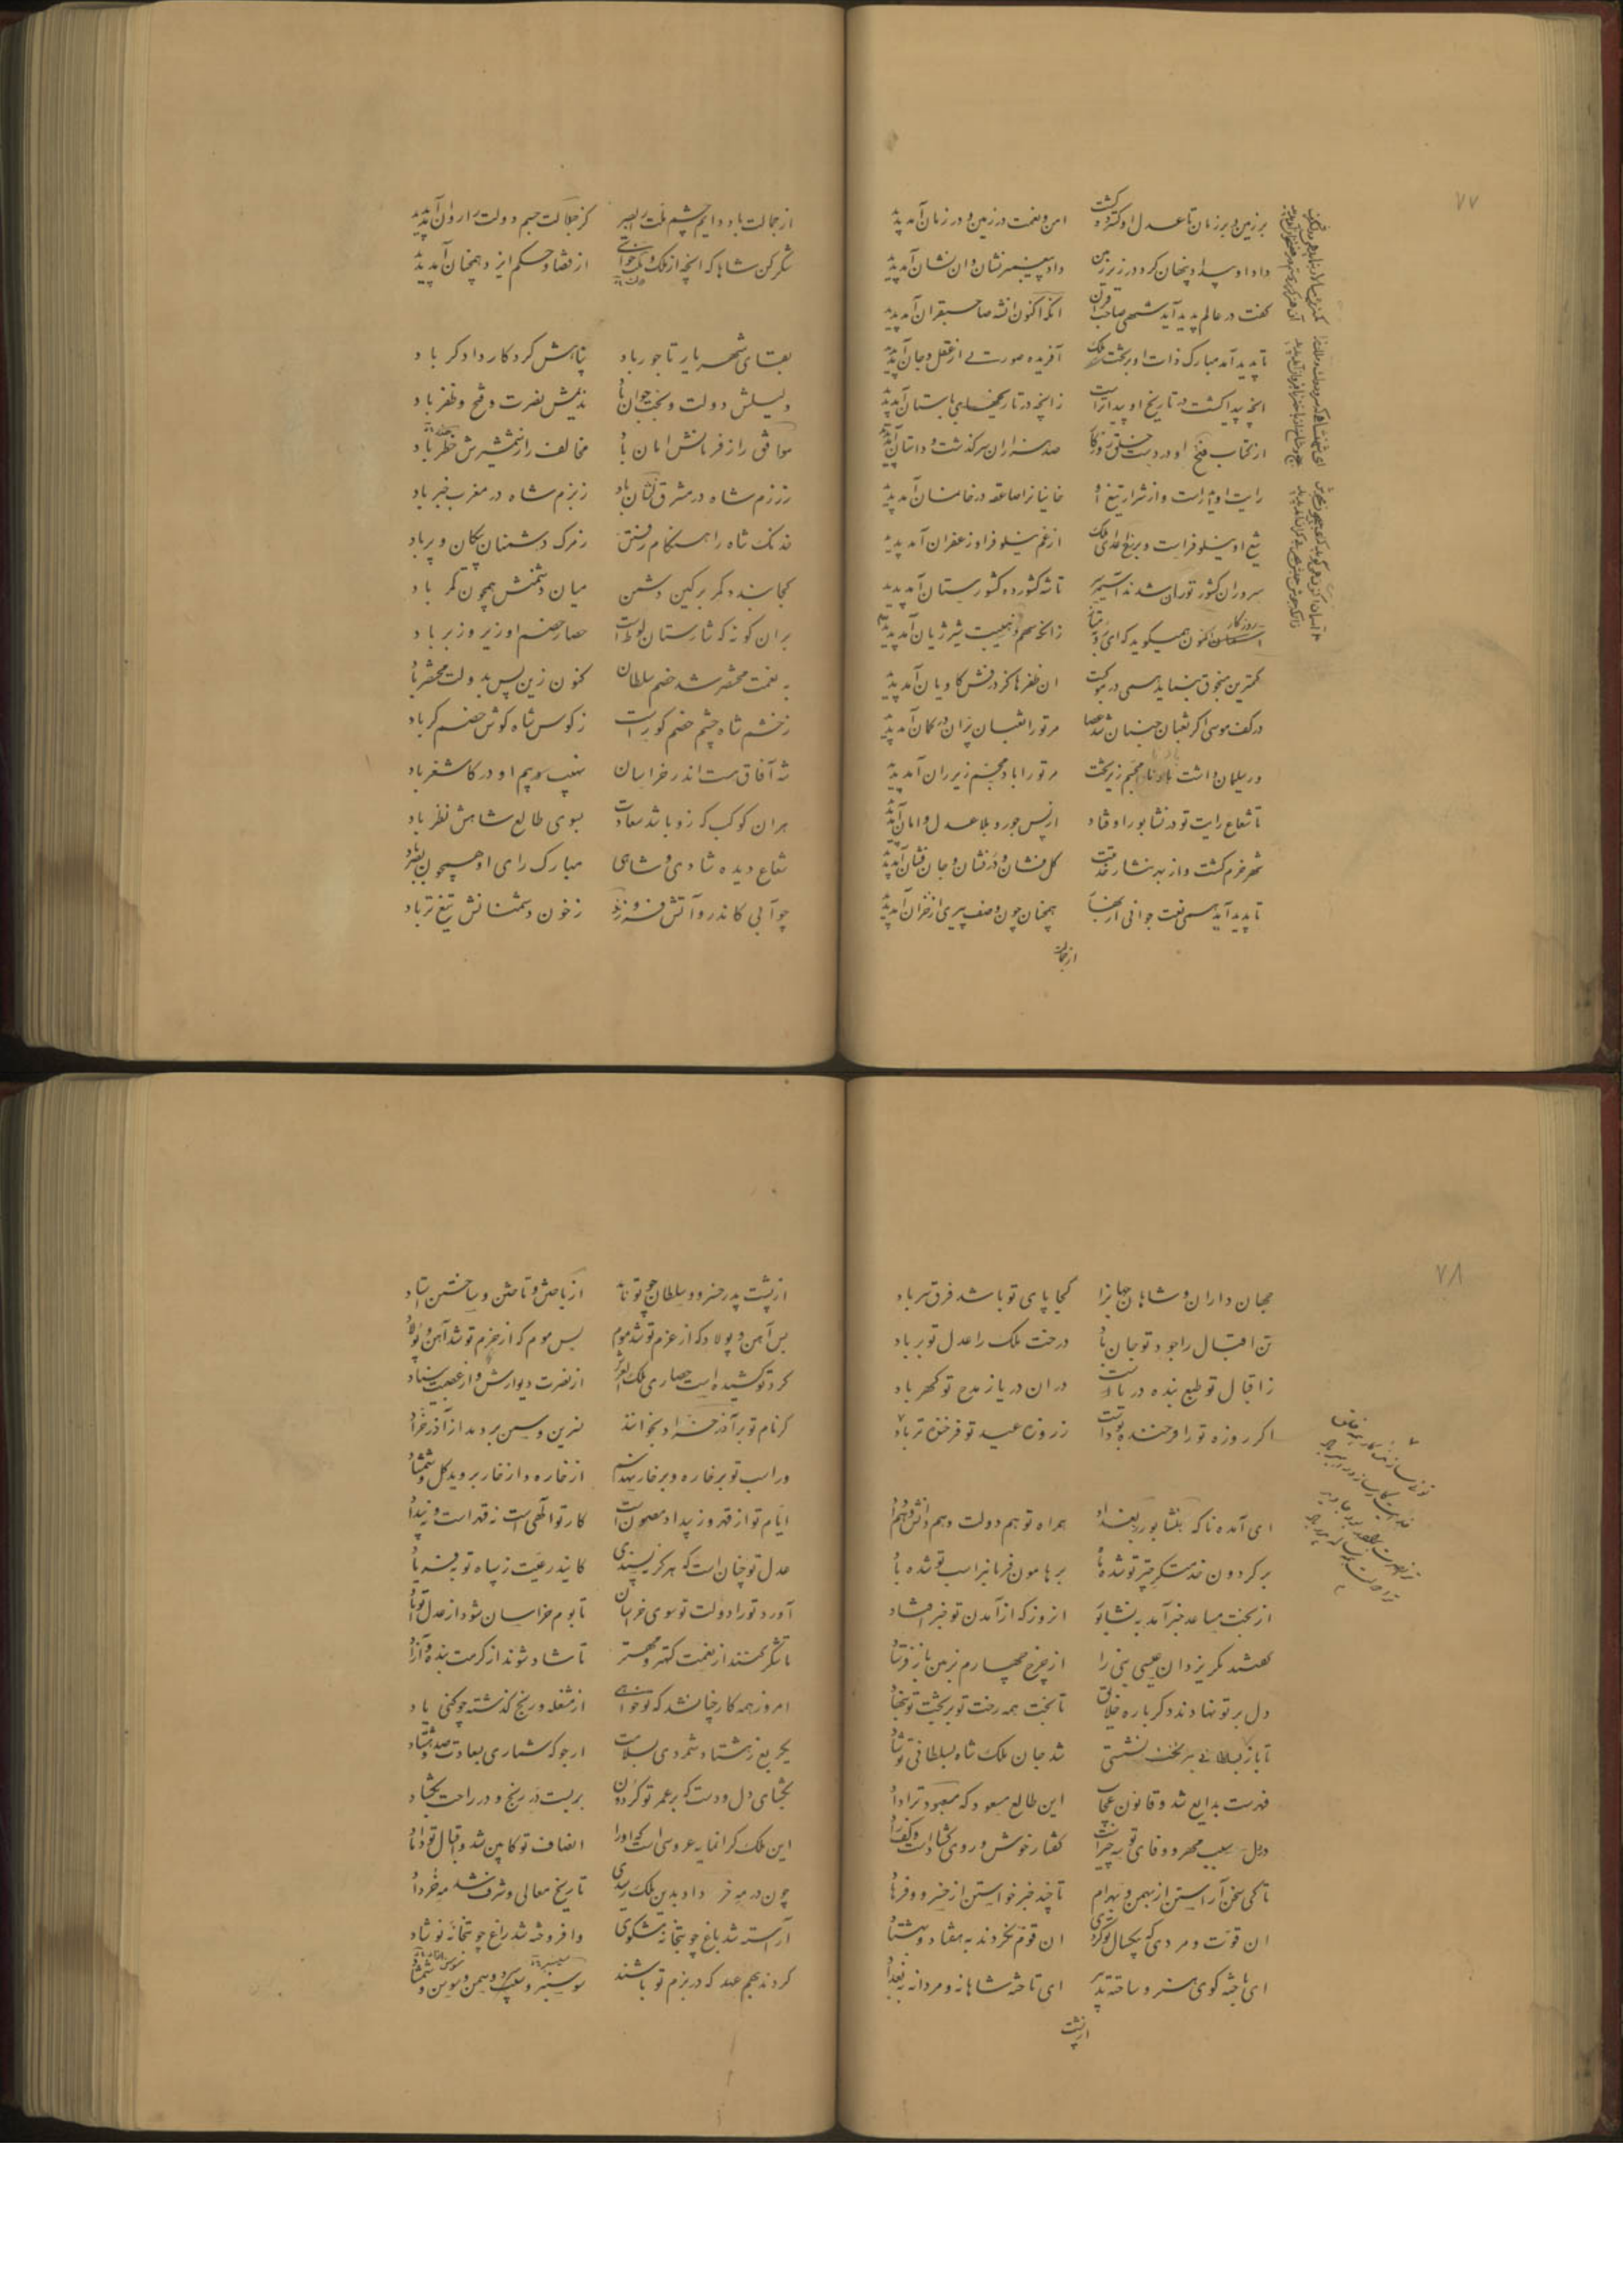 ۷۷
برزمین و بر زمان تا عدل او گسترده گشت امن و نعمت در زمین و در زمان آمد پدید
داد او بیداد پنهان کرد در زیر زمین داد پیغمبر نشان و ان نشان آمد پدید
گفت در عالم پدید آید شهی صاحب قران انکه اکنون انشه صاحبقران آمد پدید
تا پدید آمد مبارک ذات او بر تخت ملک آفریده صورتی از عقل و جان آمد پدید
انچه پیدا گشت در تاریخ او پیداتر است زانچه در تاریخهای باستان آمد پدید
از کتاب فتح او در دست خلق روزگار صد هزاران سرگذشت و داستان آمد پدید
رایت او و از شرار تیغ او خانیانرا صاعقه در خانمان آمد پدید
تیغ او نیلوفر است و بر رخ اعدای ملک از غم نیلوفر او زعفران آمد پدید
سروران کشور توران شدند آسیمه سر تا شه کشورده کشورستان آمد پدید
روزگار اکنون همیگوید که ای
کمترین منجوق بنماید همی در موکبت ان ظفرها کز درفش کاویان آمد پدید
در کف موسی اگر ثعبان جنبان شد عصا مر تو را ثعبان پران در کمان آمد پدید
ور سلیمان داشت باد مجسم زیر تخت مر تو را باد مجسم زیر ران آمد پدید
تا شعاع رایت تو در نشابور اوفتاد از پس جور و بلا عدل و امان آمد پدید
شهر خرم گشت و از بهر نثار خدمتت گل فشان و درفشان و جان فشان آمد پدید
تا پدید آید همی نعت جوانی از بهار همچنان چون وصف پیری از خزان آمد پدید
از جمالت
از جمالت باد دایم چشم ملت را بصر کز جلالت جسم دولت را روان آمد پدید
شکر کن شاها که انچه از ملک و خواستی از قضا و حکم ایزد همچنان آمد پدید
بقای شهریار تاجور باد پناهش کردگار دادگر باد
دلیلش دولت و بخت جوان باد ندیمش نصرت و فتح و ظفر باد
موافق را ز فرمانش امان باد مخالف را ز شمشیرش خطر باد
ز رزم شاه در مشرق نشان باد ز بزم شاه در مغرب خبر باد
خدنگ شاه را هنگام رفتن ز مرگ دشمنان پیکان و پر باد
کجا بندد کمر بر کین دشمن میان دشمنش همچون کمر باد
بران گونه که شارستان لوط است حصار خصم او زیر و زبر باد
به نعمت محتضر شد خصم سلطان کنون زین پس بدولت محتضر باد
ز خشم شاه چشم خصم کور است ز کوس شاه گوش خصم کر باد
شه آفاق هست اندر خراسان نهیب و بیم او در کاشغر باد
هران کوکب که زو باشد سعادت بسوی طالع شاهش نظر باد
شعاع دیده شادی و شاهی مبارک رای او همچون بصر باد
چو آبی کاندرو آتش فروزد ز خون دشمنانش تیغ تر باد
۷۸
جهان داران و شاهان جهانرا کجا پای تو باشد فرق سر باد
تن اقبال را جود تو جان باد درخت ملک را عدل تو بر باد
ز اقبال تو طبع بنده دریاست در ان دریا ز مدح تو گهر باد
اگر روزه تو را فرخنده بودست ز روزه عید تو فرخنده تر باد
ای آمده ناگه بنشابور ز بغداد همراه تو هم دولت و هم دانش و هم داد
برگردون خدمتگر چتر تو شده ماه برهامون فرمانبر اسب تو شده باد
از بخت مساعد خبر آمد به نشابور انروز که از آمدن تو خبر افتاد
گفتند مگر یزدان عیسی نبی را از چرخ چهارم بزمین باز فرستاد
دل بر تو نهادند دگر باره خلایق تا بخت همه رخت تو بر تخت تو بنهاد
تا باز بسلطانی بر تخت نشستی شد جان ملک شاه بسلطانی تو شاد
فهرست بدایع شد و قانون عجایب این طالع مسعود که معبود ترا داد
در دل سبب مهر و وفای تو چه چیز است گفتار خوش و روی گشاده است و کف راد
تا کی سخن آراستن از بهمن و بهرام تا چند خبر خواستن از خسرو و فرهاد
ان قوت و مردی که بیکسال تو کردی ان قوم نکردند به هفتاد و به هشتاد
ای باخته گوی هنر و ساخته تدبیر ای تاخته شاهانه و مردانه به بغداد
از پشت
از پشت پدر خسرو و سلطان چو تو نازاد از باختن و تاختن و ساختن استاد
بس آهن و پولاد که از عزم تو شد موم بس موم که از حزم تو شد آهن و پولاد
گرد تو کشیده است حصاری ملک العرش از نصرت دیوارش و از عصمت بنیاد
گر نام تو بر آذر خرداد بخوانند نسرین و سمن بردمد از آذر خرداد
ور اسب تو بر خاره و بر خار نهد سم از خاره و از خار بروید گل و شمشاد
ایام تو از قهر و ز بیداد مصون است کار تو الهی است نه قهر است و نه بیداد
عدل تو چنان است که هرگز نپسندی کاید ز رعیت ز سپاه تو به فریاد
آورد تو را دولت تو سوی خراسان تا بوم خراسان شود از عدل تو آباد
تا شکر کنند از نعمت کهتر و مهتر تا شاد شوند از کرمت بنده و آزاد
امروز همه کار چنانشد که تو خواهی از مشغله و رنج گذشته چکنی یاد
یکربع ز هشتاد شمردی بسلامت ارجو که شماری بسعادت صد و هشتاد
بگشای دل و دست که بر عمر تو گردون بربست در رنج و در راحت بگشاد
این ملک گرانمایه عروسی است که او را انصاف تو کابین شد و اقبال تو داماد
چون در مه خرداد بدین ملک رسیدی تاریخ معالی و شرف شد مه خرداد
آراسته شد باغ چو بتخانه مشکوی وافروخته شد راغ چو بتخانه نوشاد
کردند بهم عهد که در بزم تو باشند سوسنبر و سیسنبر و سمن و سوسن و شمشاد